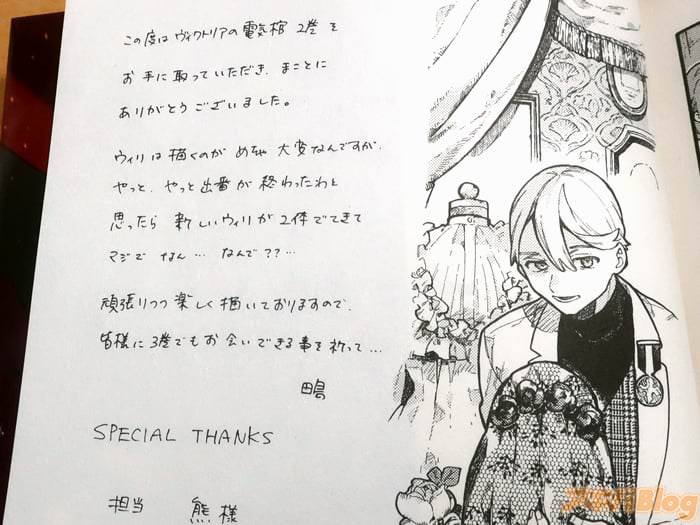 この度はヴィクトリアの電気棺 2巻を
お手に取っていただき、まことに
ありがとうございました。
ウィリは描くのが めちゃ 大変なんですが、
やっと、やっと出番が 終わったわと
思ったら 新しいウィリが 2体でてきて
マジで なん… なんで??…
頑張りつつ楽しく描いておりますので、
皆様に 3巻でもお会いできる事を祈って…
SPECIAL THANKS
担当 熊様
アキバBlog